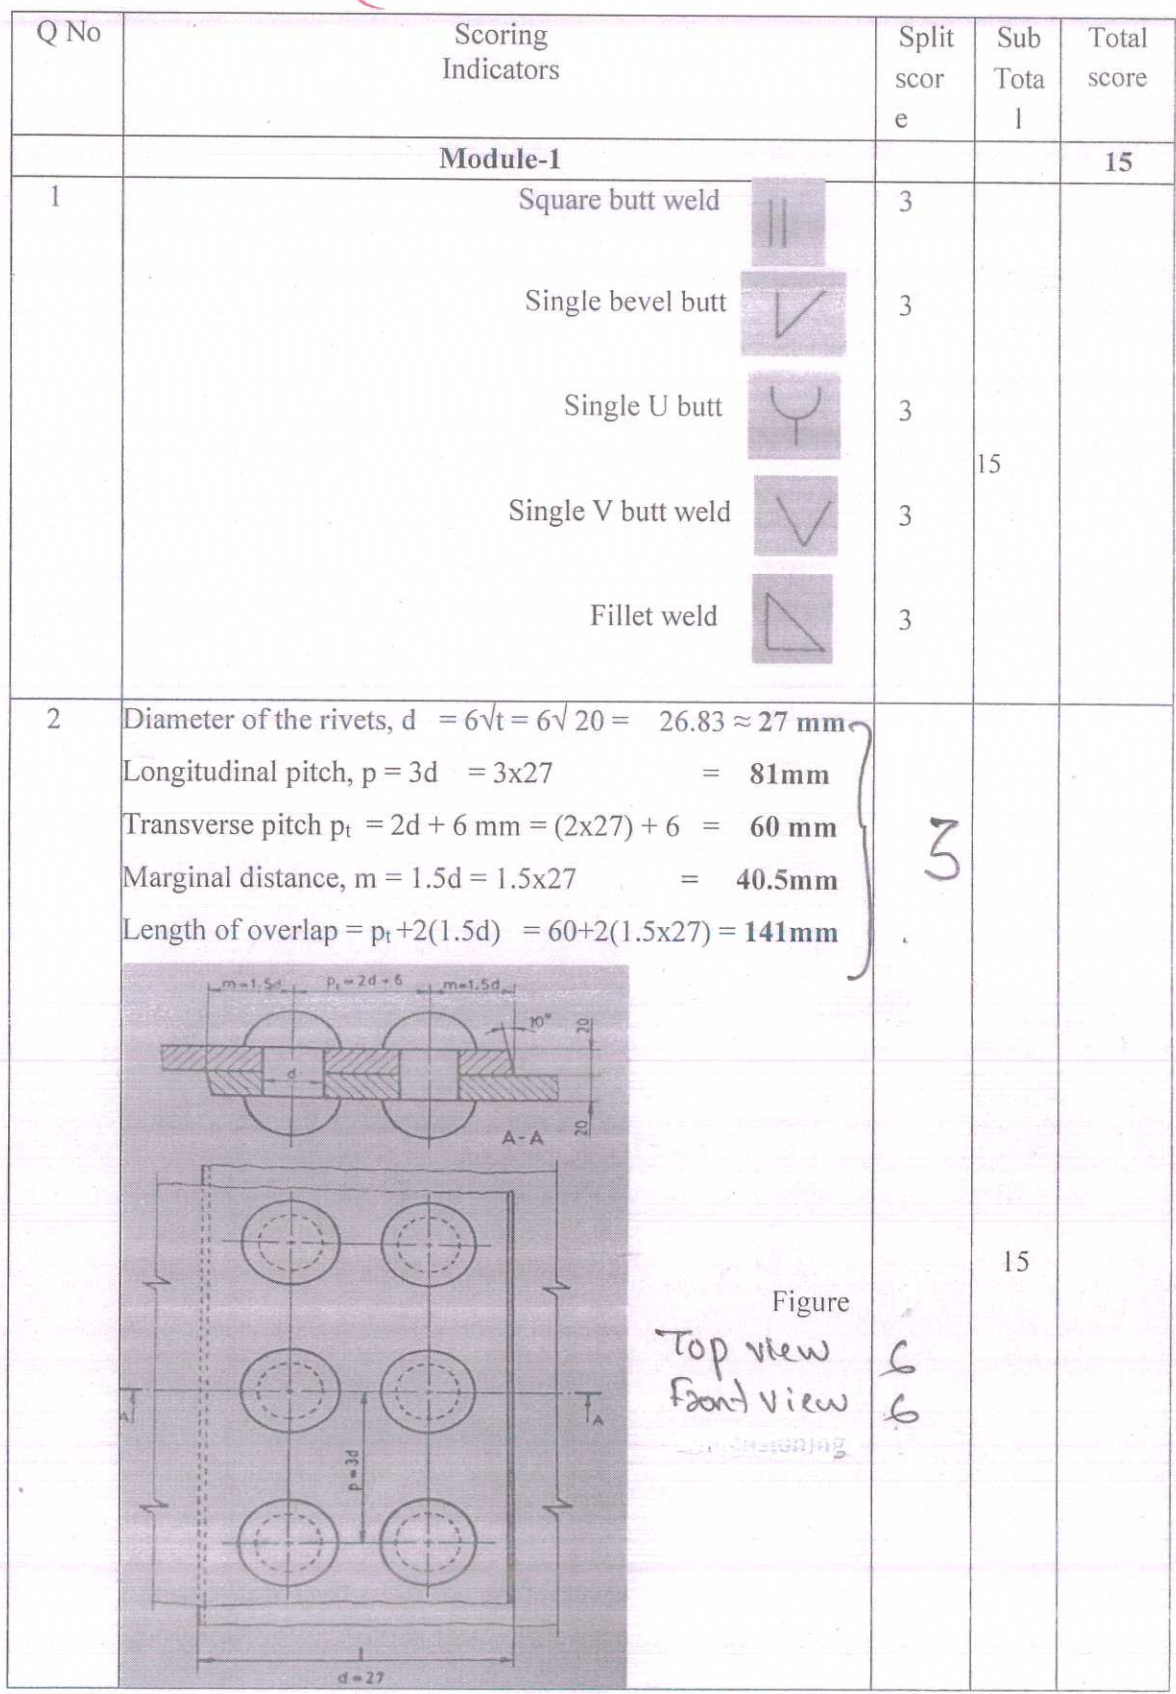 Q No
Scoring
Indicators
Split
scor
e
Sub
Tota
l
Total
score
Module-1
15
1
Square butt weld
3
Single bevel butt
3
Single U butt
3
15
Single V butt weld
3
Fillet weld
3
2
Diameter of the rivets, d = 6√t = 6√ 20 = 26.83 ≈ 27 mm
Longitudinal pitch, p = 3d = 3x27 = 81mm
Transverse pitch pt = 2d + 6 mm = (2x27) + 6 = 60 mm
Marginal distance, m = 1.5d = 1.5x27 = 40.5mm
Length of overlap = pt +2(1.5d) = 60+2(1.5x27) = 141mm
3
m=1.5d
Pt = 2d + 6
m=1.5d
10°
20
d
20
A-A
15
Figure
Top view 6
Front view 6
A
A
p=3d
d=27